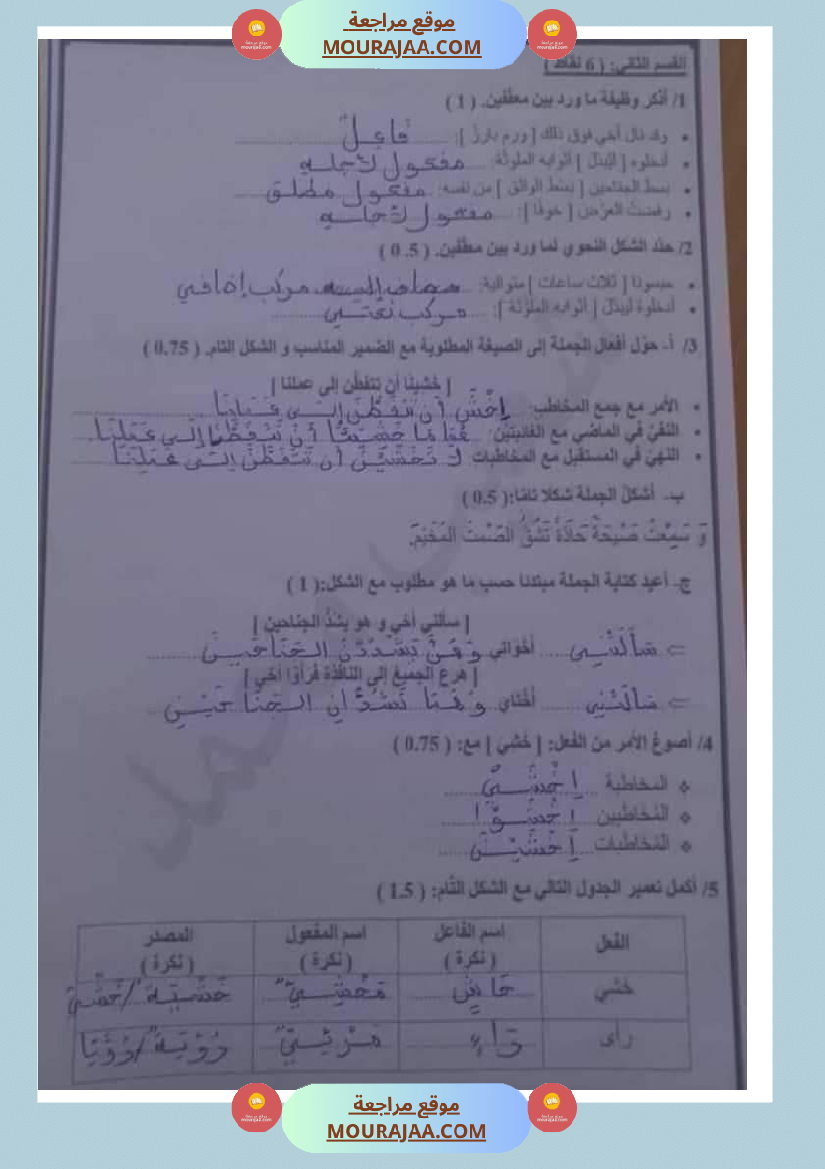 موقع مراجعة
MOURAJAA.COM
القسم الثاني: ( 6 نقاط )
1/ أذكر وظيفة ما ورد بين معقّفين. ( 1 )
• وقد نال أخي فوق ذلك [ ورم بارز ]: فَاعِلٌ
• أدخلوه [ ليُبدّل ] أثوابه الملوثة: مفعول لأجله
• بسط الجناحين [ بسْط الواثق ] من نفسه: مفعول مطلق
• رفضتُ العرْض [ خوفا ]: مفعول لأجله
2/ حدّد الشكل النحوي لما ورد بين معقّفين. ( 0.5 )
• حبسونا [ ثلاث ساعات ] متوالية: مركب إضافي
• أدخلوهُ ليُبدّل [ أثوابه الملوّثة ]: مركب نعتي
3/ أ- حوّل أفعال الجملة إلى الصيغة المطلوبة مع الضمير المناسب و الشكل التام. ( 0.75 )
[ خشينا أن نتفطّن إلى عملنا ]
• الأمر مع جمع المخاطب:
• النفيّ في الماضي مع الغائبتيْن:
• النهيّ في المستقبل مع المخاطبات لَا تَخْشَيْنَ أن تتفطّنّ إلى عملنا
ب- أشكلُ الجملة شكلا تامّا: ( 0.5 )
وَ سَمِعْتُ صَيْحَةً حَادَّةً تَشُقُّ الصَّمْتَ المُخَيِّمَ.
ج- أعيد كتابة الجملة مبتدئا حسب ما هو مطلوب مع الشكل: ( 1 )
[ سألني أخي و هو يشدّ الجناحين ]
⊂ سَأَلَتْنِي أخواتي وَهُنَّ يَشْدُدْنَ الجَنَاحَيْنِ
[ هرع الجميعُ إلى النافذة فرأوْا أخي ]
⊂ سَالَتْنِي أختاي وَهُمَا تَشُدَّانِ الجَنَاحَيْنِ
4/ أصوغ الأمر من الفعل: [ خشيَ ] مع: ( 0.75 )
❖ المخاطبة اِخْشَيْ
❖ المُخاطبين اِخْشَوْا
❖ المُخاطبات اِخْشَيْنَ
5/ أكمل تعمير الجدول التالي مع الشكل التّام: ( 1.5 )
الفعل اسم الفاعل ( نكرة ) اسم المفعول ( نكرة ) المصدر ( نكرة )
خشي خَاشٍ مَخْشِيٌّ خَشْيَةٌ/خَشْيٌ
رأى رَاءٍ مَرْئِيٌّ رُؤْيَةٌ/رُؤْيَا
موقع مراجعة
MOURAJAA.COM